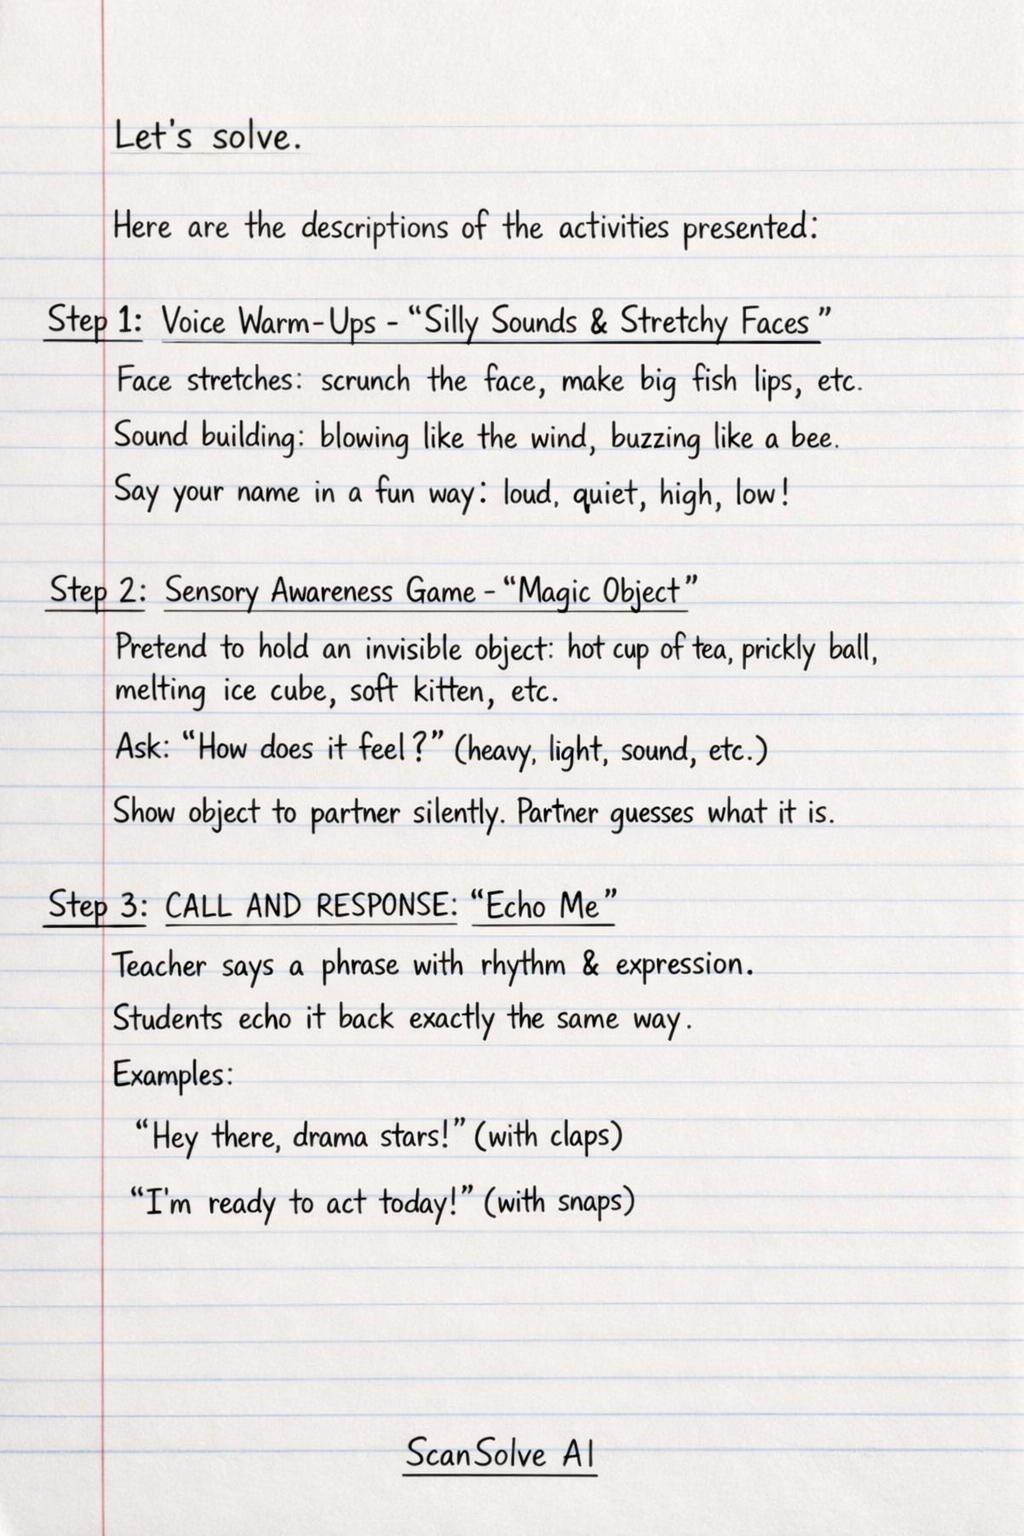 Let's solve.
Here are the descriptions of the activities presented:
Step 1: Voice Warm-Ups - "Silly Sounds & Stretchy Faces"
Face stretches: scrunch the face, make big fish lips, etc.
Sound building: blowing like the wind, buzzing like a bee.
Say your name in a fun way: loud, quiet, high, low!
Step 2: Sensory Awareness Game - "Magic Object"
Pretend to hold an invisible object: hot cup of tea, prickly ball,
melting ice cube, soft kitten, etc.
Ask: "How does it feel?" (heavy, light, sound, etc.)
Show object to partner silently. Partner guesses what it is.
Step 3: CALL AND RESPONSE: "Echo Me"
Teacher says a phrase with rhythm & expression.
Students echo it back exactly the same way.
Examples:
"Hey there, drama stars!" (with claps)
"I'm ready to act today!" (with snaps)
ScanSolve AI